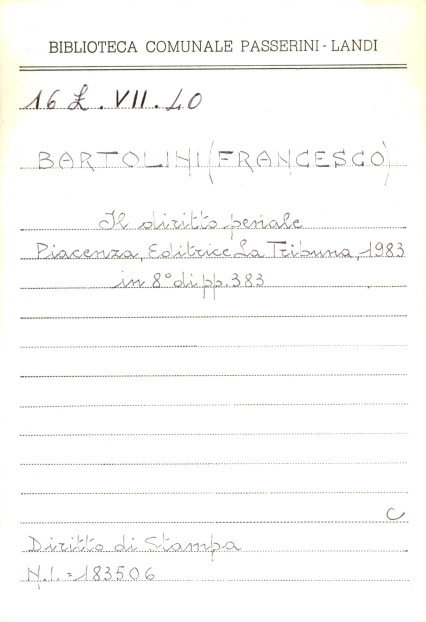 BIBLIOTECA COMUNALE PASSERINI - LANDI
16 L. VII. 40
BARTOLINI (FRANCESCO)
Il diritto penale
Piacenza, Editrice La Tribuna, 1983
in 8° di pp. 383
C
Diritto di Stampa
N.I. = 183506